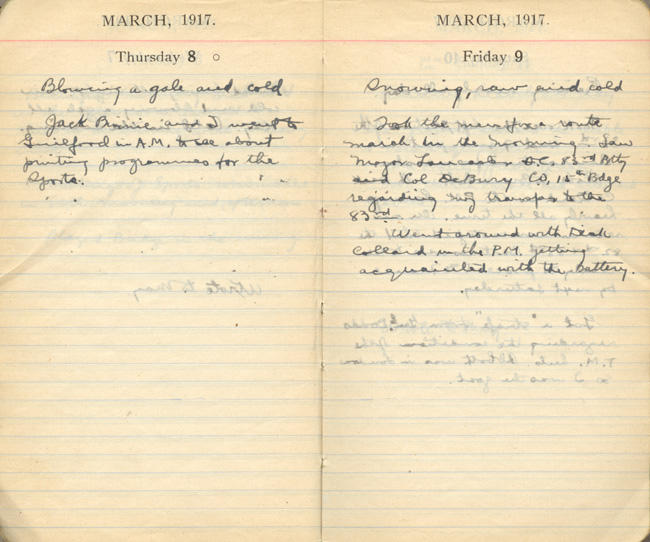 MARCH, 1917.
Thursday 8
Blowing a gale and cold
Jack and I went to
Guilford in A.M. to see about
printing programmes for the
Sports.
MARCH, 1917.
Friday 9
Snowing, raw and cold
Took the men for a route
march in the morning. Saw
Major Lancaster O.C. 83rd Bty
and Col DeBury C.O, 15th Bdge
regarding my transfer to the
83rd.
Went around with
Collard in the P.M. getting
acquainted with the battery.